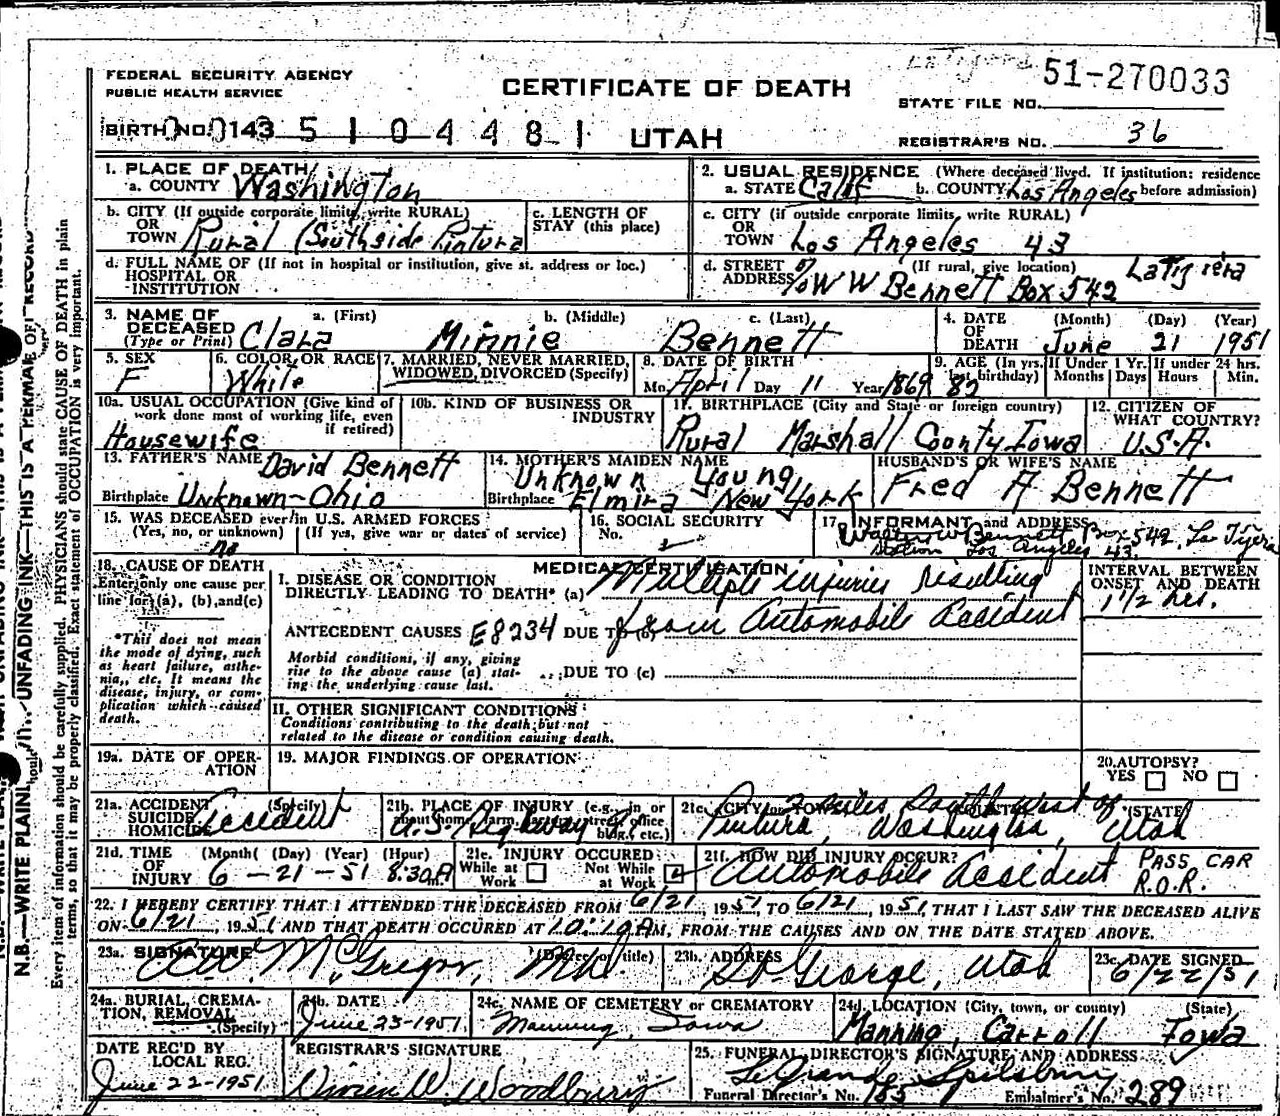 51-270033
FEDERAL SECURITY AGENCY
PUBLIC HEALTH SERVICE
CERTIFICATE OF DEATH
STATE FILE NO.
BIRTH NO. 0143 5 1 0 4 4 8 1 UTAH
REGISTRAR'S NO. 36
1. PLACE OF DEATH
a. COUNTY Washington
2. USUAL RESIDENCE (Where deceased lived. If institution: residence before admission)
a. STATE Calif b. COUNTY Los Angeles
b. CITY (If outside corporate limits, write RURAL) OR TOWN Rural (Southside Pintura
c. LENGTH OF STAY (this place)
c. CITY (if outside corporate limits, write RURAL) OR TOWN Los Angeles 43
d. FULL NAME OF (If not in hospital or institution, give st. address or loc.) HOSPITAL OR INSTITUTION
d. STREET ADDRESS (If rural, give location) % W W Bennett Box 542 LaTijera
3. NAME OF DECEASED (Type or Print)
a. (First) b. (Middle) c. (Last)
Clara Minnie Bennett
4. DATE OF DEATH (Month) (Day) (Year)
June 21 1951
5. SEX F
6. COLOR OR RACE White
7. MARRIED, NEVER MARRIED, WIDOWED, DIVORCED (Specify)
8. DATE OF BIRTH
Mo. April Day 11 Year 1869
9. AGE (In yrs. last birthday) 82
If Under 1 Yr. Months Days
If under 24 hrs. Hours Min.
10a. USUAL OCCUPATION (Give kind of work done most of working life, even if retired)
Housewife
10b. KIND OF BUSINESS OR INDUSTRY
11. BIRTHPLACE (City and State or foreign country)
Rural Marshall County Iowa
12. CITIZEN OF WHAT COUNTRY?
U.S.A.
13. FATHER'S NAME David Bennett
Birthplace Unknown-Ohio
14. MOTHER'S MAIDEN NAME
Unknown Young
Birthplace Elmira New York
HUSBAND'S OR WIFE'S NAME
Fred A Bennett
15. WAS DECEASED ever in U.S. ARMED FORCES
(Yes, no, or unknown) (If yes, give war or dates of service)
no
16. SOCIAL SECURITY
No.
17. INFORMANT and ADDRESS
Walter W Bennett Box 542, La Tijera
Station Los Angeles 43.
18. CAUSE OF DEATH
Enter only one cause per line for (a), (b), and (c)
*This does not mean the mode of dying, such as heart failure, asthenia, etc. It means the disease, injury, or complication which caused death.
MEDICAL CERTIFICATION
I. DISEASE OR CONDITION DIRECTLY LEADING TO DEATH* (a) Multiple injuries resulting
ANTECEDENT CAUSES E8234 DUE TO (b) from Automobile Accident
Morbid conditions, if any, giving rise to the above cause (a) stating the underlying cause last.
DUE TO (c)
INTERVAL BETWEEN ONSET AND DEATH
1 1/2 hrs.
II. OTHER SIGNIFICANT CONDITIONS
Conditions contributing to the death but not related to the disease or condition causing death.
19a. DATE OF OPERATION
19. MAJOR FINDINGS OF OPERATION
20. AUTOPSY?
YES NO
21a. ACCIDENT SUICIDE HOMICIDE (Specify) Accident
21b. PLACE OF INJURY (e.g., in or about home, farm, factory, street, office bldg., etc.)
U.S. Highway 91
21c. (CITY or TOWN) (STATE)
2 miles Southwest of
Pintura, Washington, Utah
21d. TIME OF INJURY (Month) (Day) (Year) (Hour)
6 - 21 - 51 8:30 A m.
21e. INJURY OCCURED
While at Work Not While at Work
21f. HOW DID INJURY OCCUR?
Automobile Accident PASS CAR R.O.R.
22. I HEREBY CERTIFY THAT I ATTENDED THE DECEASED FROM 6/21, 1951 TO 6/21, 1951, THAT I LAST SAW THE DECEASED ALIVE
ON 6/21, 1951 AND THAT DEATH OCCURED AT 10:10 A M, FROM THE CAUSES AND ON THE DATE STATED ABOVE.
23a. SIGNATURE (Degree or title)
McGregor, M.D.
23b. ADDRESS
St George, Utah
23c. DATE SIGNED
6/22/51
24a. BURIAL, CREMATION, REMOVAL (Specify)
24b. DATE
June 23-1951
24c. NAME OF CEMETERY OR CREMATORY
Manning, Iowa
24d. LOCATION (City, town, or county) (State)
Manning, Carroll Iowa
DATE REC'D BY LOCAL REG.
June 22-1951
REGISTRAR'S SIGNATURE
Vivian W. Woodbury
25. FUNERAL DIRECTOR'S SIGNATURE AND ADDRESS
LeGrande Spilsbury
Funeral Director's No. 185 Embalmer's No. 289
N.B.—WRITE PLAINLY WITH UNFADING INK—THIS IS A PERMANENT RECORD
Every item of information should be carefully supplied. PHYSICIANS should state CAUSE OF DEATH in plain
terms, so that it may be properly classified. Exact statement of OCCUPATION is very important.